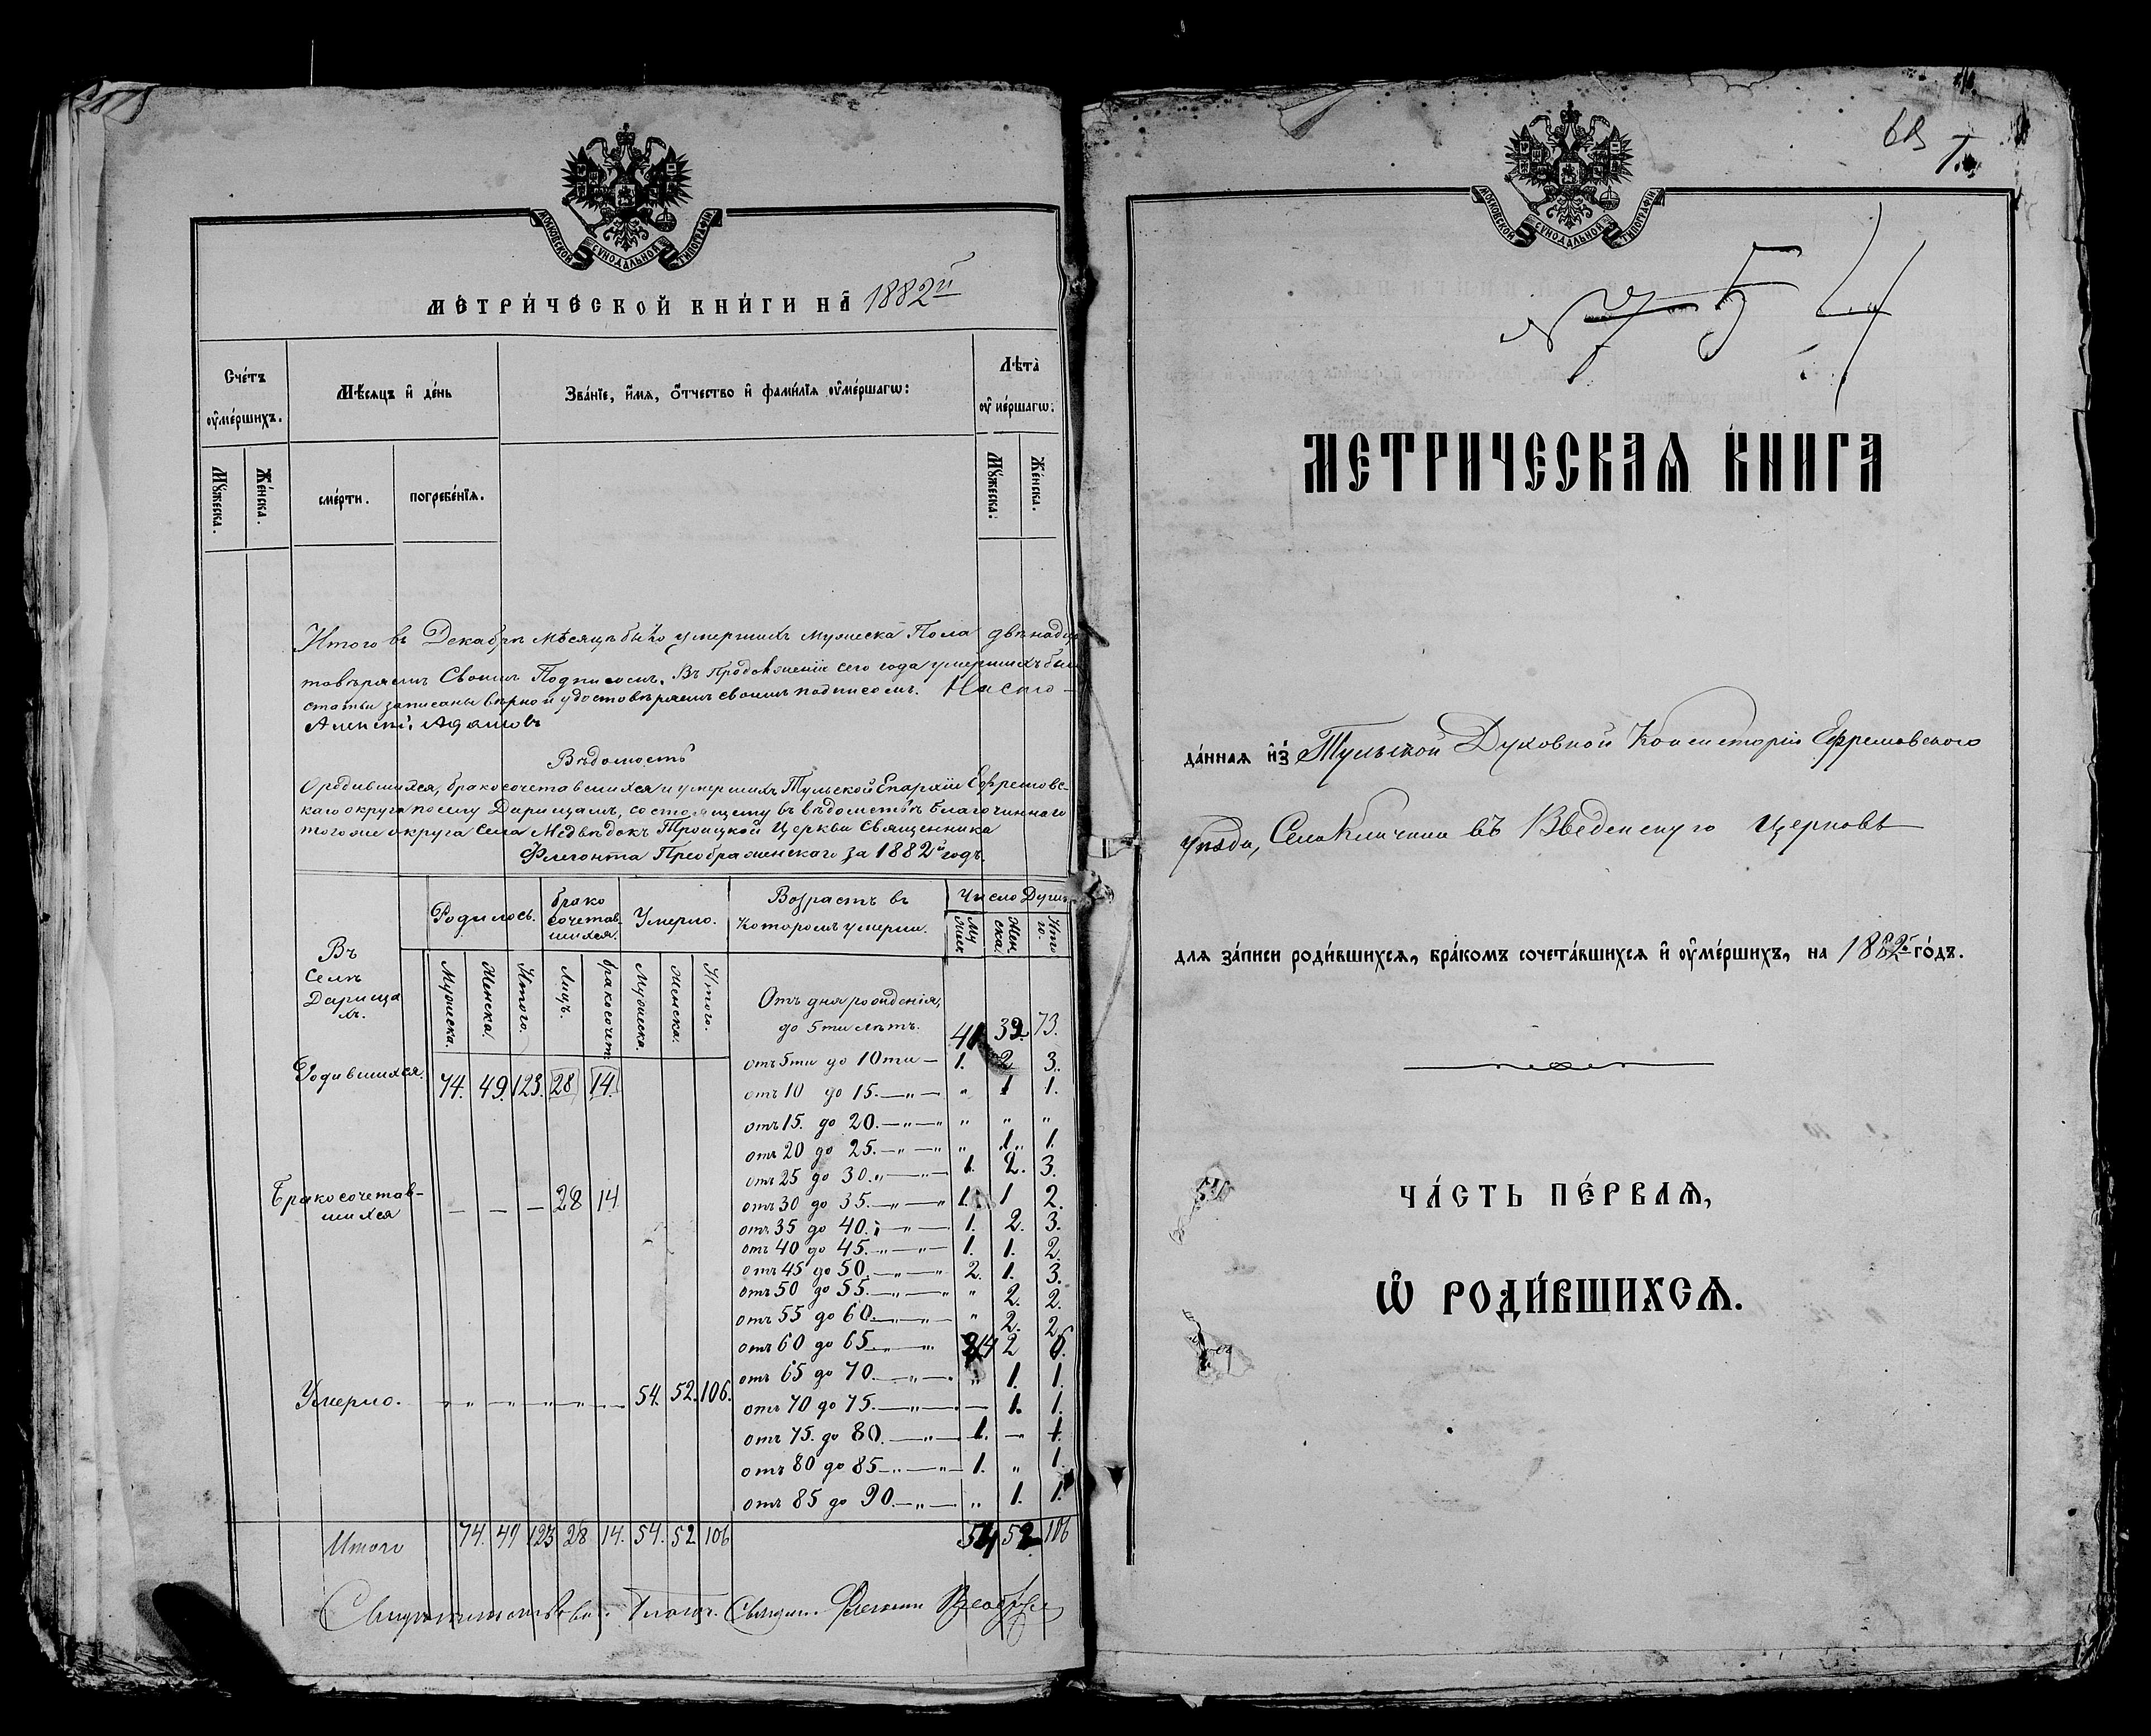 МОСКОВСКОЙ СѴНОДАЛЬНОЙ ТИПОГРАФІИ
МЕТРИ́ЧЕСКОЙ КНИ́ГИ НА 1882й
Сче́тъ ᲂу҆ме́ршихъ.
Мѣ́сяцъ и҆ де́нь
Зва́нїе, и҆́мѧ, ѻ҆́тчество и҆ фами́лїѧ ᲂу҆ме́ршагѡ:
Лѣ́та ᲂу҆ме́ршагѡ:
Мꙋ́жеска.
Же́нска.
сме́рти.
погребе́нїѧ.
Мꙋ́жеска:
Же́нска.
Итого въ Декабрѣ мѣсяцѣ было умершихъ мужеска Пола двѣнадца
товѣряемъ Своимъ Подписомъ. Въ Продолженіи сего года умершихъ бы
статьи записаны вѣрно и удостовѣряемъ своимъ подписомъ.
Алексѣй Адамовъ
Вѣдомость
О родившихся, бракосочетавшихся и умершихъ Тульской Епархіи Ефремовс-
каго округа по селу Дарищамъ, состоящему въ вѣдомствѣ Благочиннаго
того же округа села Медвѣдокъ Троицкой Церкви Священника
Флегонта Преображенскаго за 1882й годъ.
Въ Селѣ Дарищахъ.
Родилось.
Бракосочетавшихся.
Умерло.
Возрастъ въ которомъ умерли.
Число Душъ
Мужеска. Женска. Итого. Лицъ. бракосочет. Мужеска. Женска. Итого.
Муж Женска Итого.
Отъ дня рожденія,
до 5ти лѣтъ. 41 32 73.
отъ 5ти до 10ти — 1. 2 3.
Родившихся. 74. 49. 123. 28 14.
отъ 10 до 15. —„— „ 1 1.
отъ 15. до 20. —„—„ „ „ „
отъ 20 до 25. —„—„ „ 1. 1.
отъ 25 до 30. „—„— 1. 2. 3.
Бракосочетав-
шихся — — — 28 14
отъ 30 до 35. —„—„ 1. 1 2.
отъ 35 до 40. „—„— 1. 2. 3.
отъ 40 до 45. —„— 1. 1. 2.
отъ 45 до 50. —„—„ 2. 1. 3.
отъ 50 до 55. —„—„ „ 2. 2.
отъ 55 до 60. —„— „ 2. 2
отъ 60 до 65 —„—„ 4 2 6.
отъ 65 до 70. —„— „ 1. 1.
Умерло. — „ — „ „ „ — 54. 52. 106.
отъ 70 до 75. —„— — 1. 1.
отъ 75. до 80. —„— 1. —„ 1.
отъ 80 до 85 —„—„— 1. „ 1.
отъ 85 до 90. —„— „ 1. 1.
Итого 74. 49 123 28 14. 54. 52 106 54 52 106
МОСКОВСКОЙ СѴНОДАЛЬНОЙ ТИПОГРАФІИ
МЕТРИЧЕСКАѦ КНИГА
да́ннаѧ и҆з̾ Тульской Духовной Консисторіи Ефремовского
Уѣзда, Села Кличина въ Введенскую церковь
для за́писи роди́вшихсѧ, бра́комъ сочета́вшихсѧ и҆ ᲂу҆ме́ршихъ, на 1882й го́дъ.
ЧА́СТЬ ПЕ́РВАѦ,
Ѡ҆ РОДИ́ВШИХСѦ.